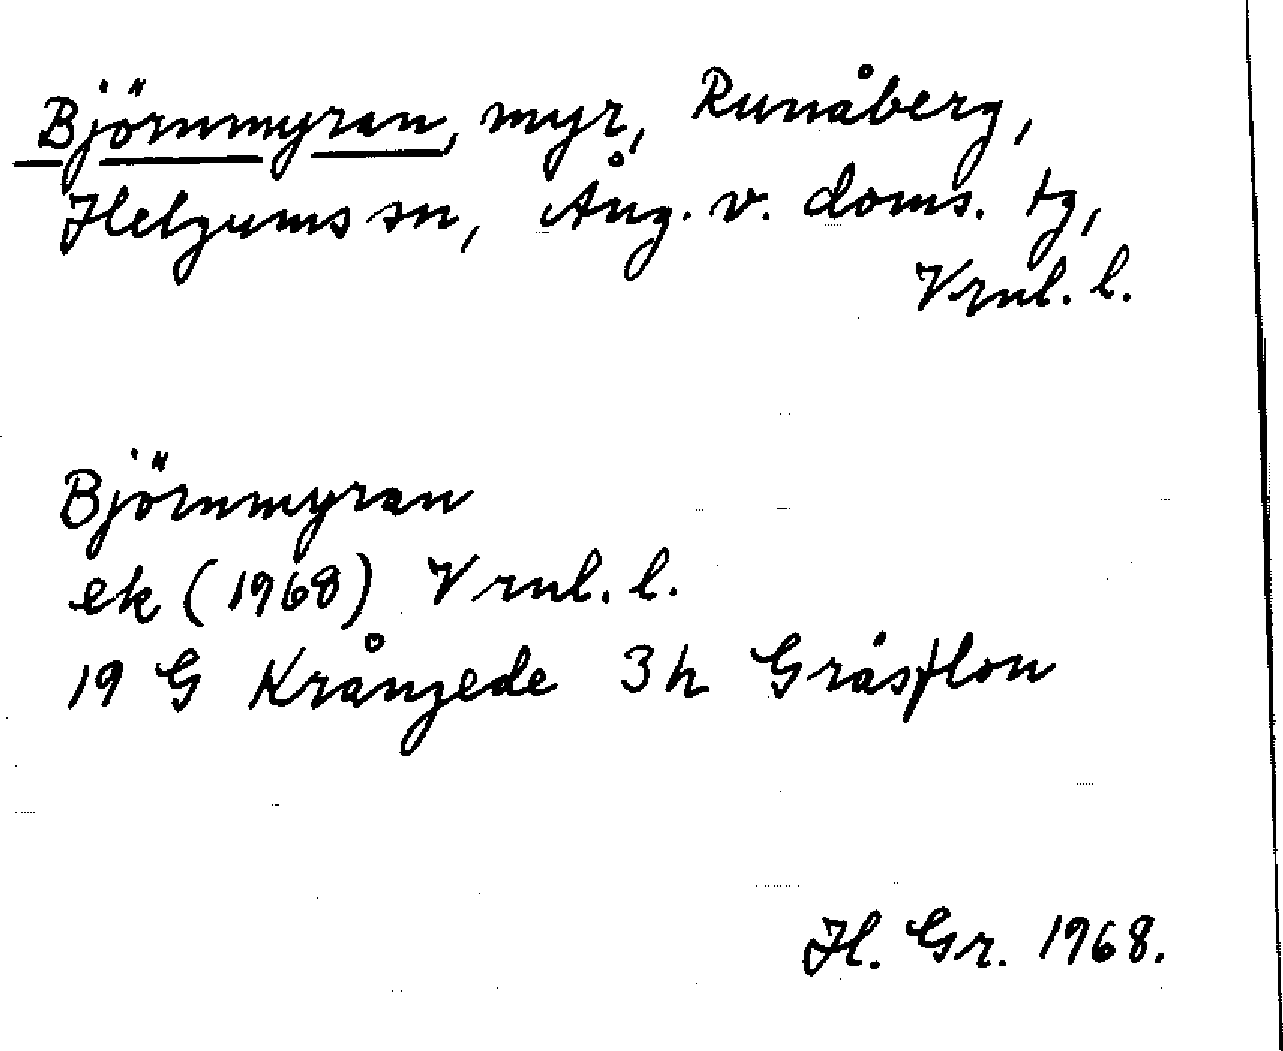 Björnmyran, myr, Runåberg,
Helgums sn, Ång. v. doms. tg,
Vrnl. l.
Björnmyran
ek (1968) Vrnl. l.
19 G Krångede 3h Gråsflon
H. Gr. 1968.